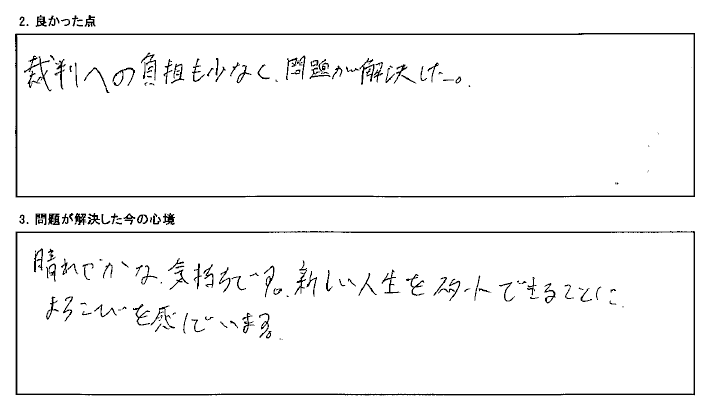 2. 良かった点
裁判への負担も少なく、問題が解決した。
3. 問題が解決した今の心境
晴れやかな気持ちです。新しい人生をスタートできることに
よろこびを感じています。